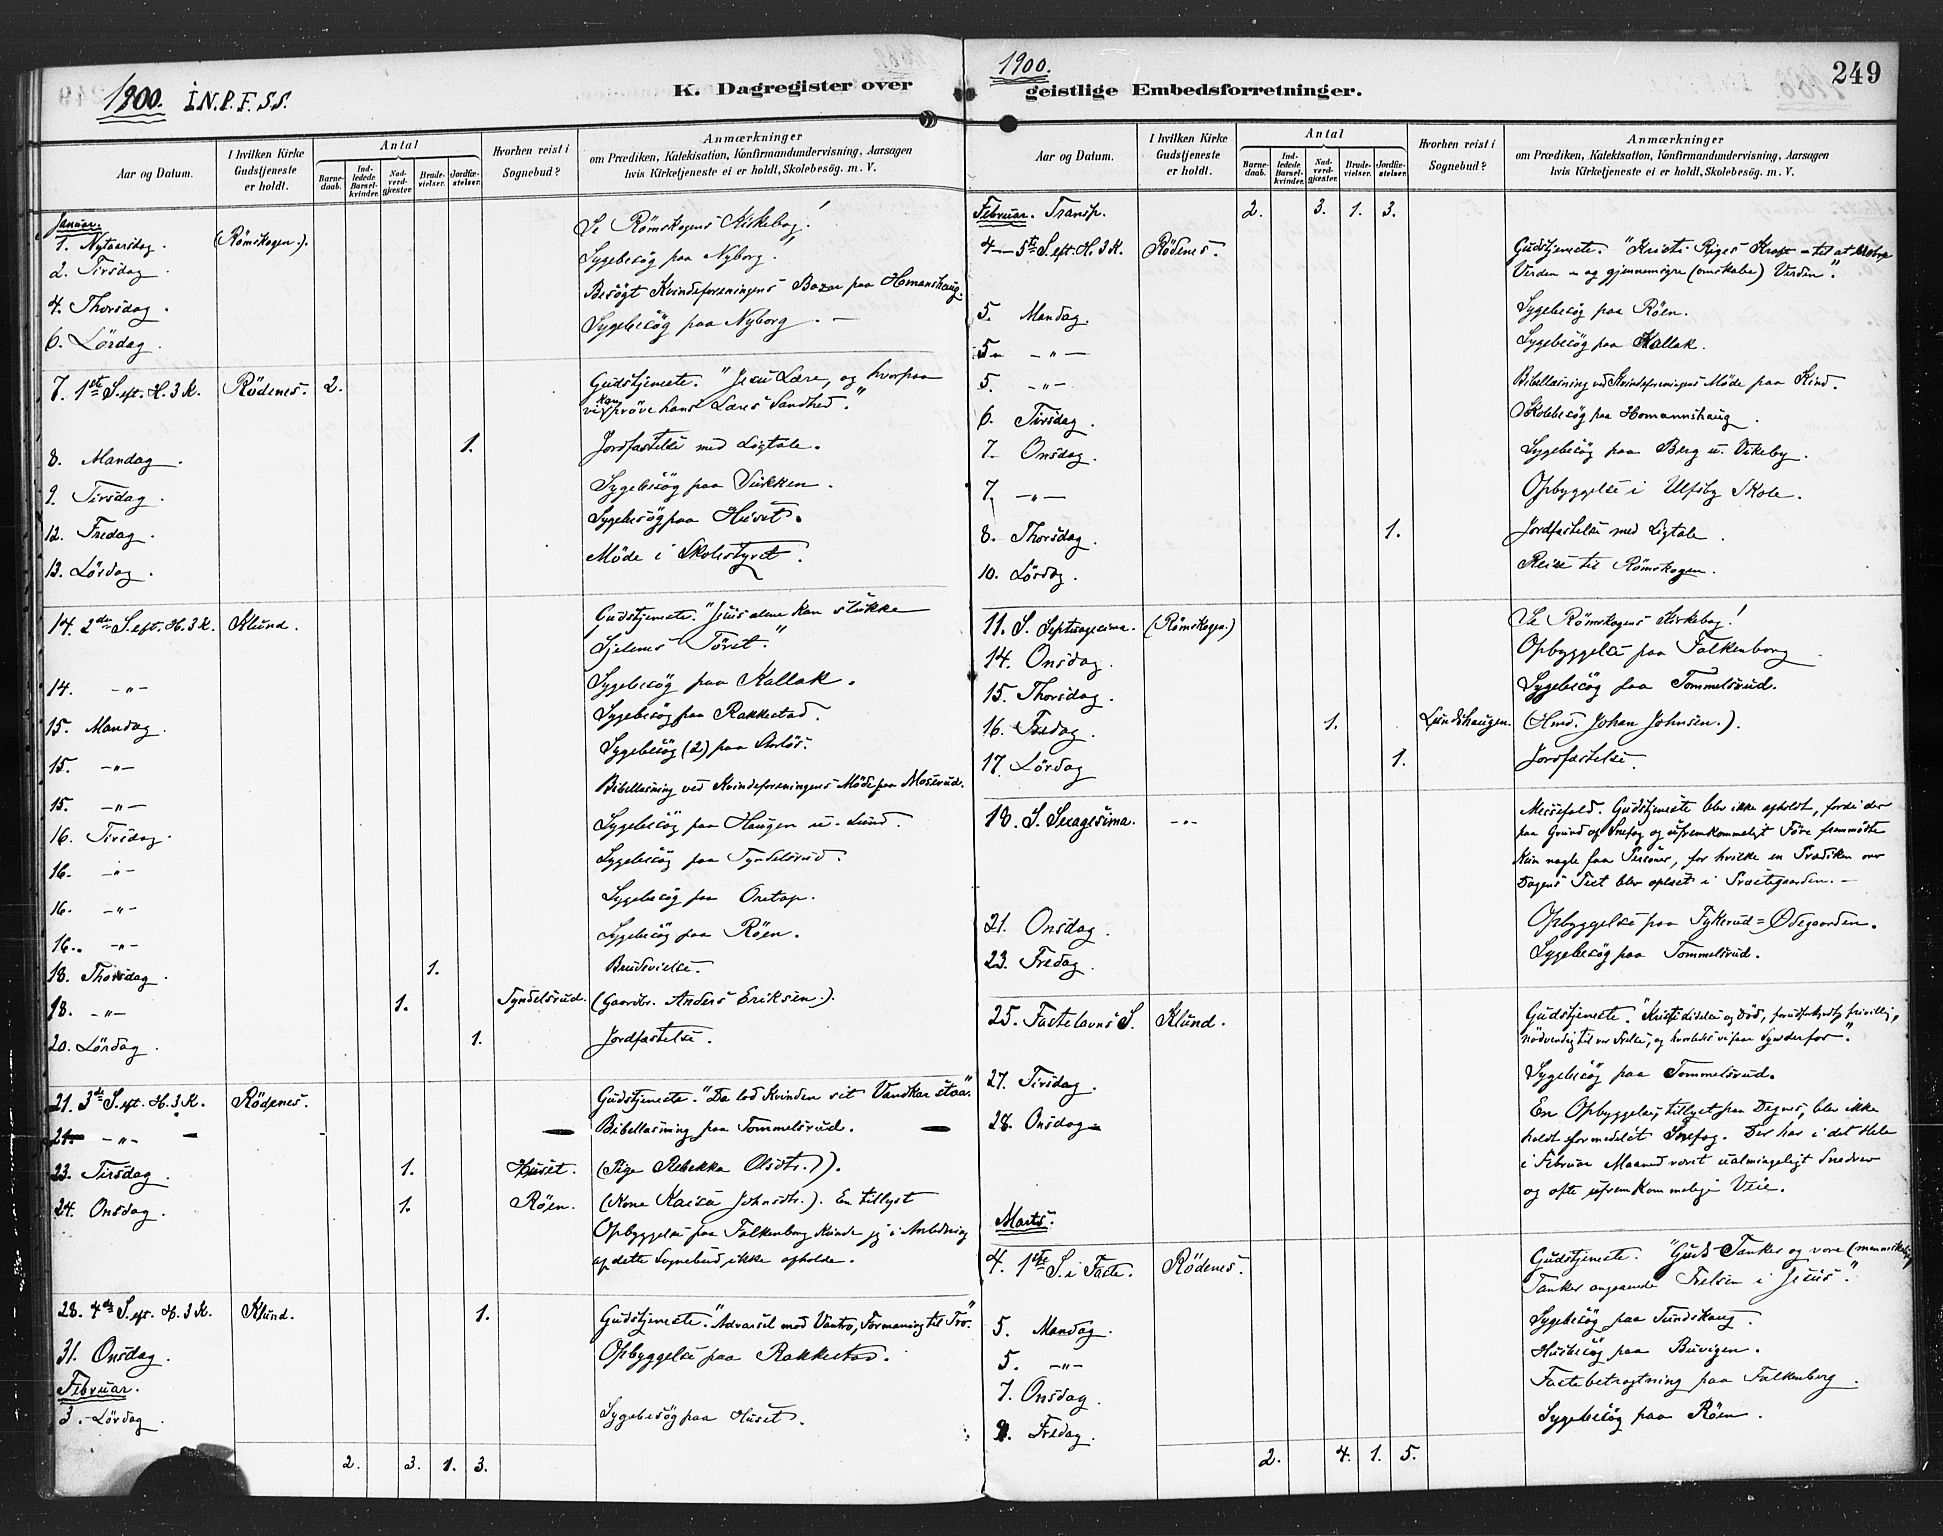 1900. I.N.P.F.S.S.
K. Dagregister over
Aar og Datum.
I hvilken Kirke Gudstjeneste er holdt.
Antal
Barne-daab.
Ind-ledede Barsel-kvinder.
Nad-verd-gjæster.
Brude-vielser.
Jordfæ-stelser.
Hvorhen reist i Sognebud?
Anmærkninger
om Prædiken, Katekisation, Konfirmandundervisning, Aarsagen
hvis Kirketjeneste ei er holdt, Skolebesøg. m. V.
Januar.
1. Nytaarsdag. (Römskogen.). Se Römskogens Kirkebog!
2. Tirsdag. Sygebesög paa Nyborg.
4. Thorsdag. Besögt Kvindeforeningens Bazar paa Homanshaug.
6. Lördag. Sygebesög paa Nyborg. —
7. 1ste S. eft. H. 3 K. Rödenes. 2. Gudstjeneste. "Jesu Lære, og hvorpaa
vi kan pröve hans Læres Sandhed."
8. Mandag. 1. Jordfæstelse med Ligtale.
9. Tirsdag. Sygebesög paa
12. Fredag. Sygebesög paa Huset.
13. Lördag. Möde i Skolestyret.
14. 2den S. eft. H. 3 K. Klund. Gudstjeneste. "Jesus alene kan slukke
Sjelenes Törst."
14. -"- Sygebesög paa Kallak.
15. Mandag. Sygebesög paa Rakkestad.
15. -"- Sygebesög (2) paa
15. -"- Bibellæsning ved Kvindeforeningens Möde paa Moserud.
16. Tirsdag. Sygebesög paa Haugen u. Lund.
16. -"- Sygebesög paa Tyndelsrud.
16. -"- Sygebesög paa
16. -"- Sygebesög paa Röen.
18. Thorsdag. 1. Brudevielse.
18. -"- 1. Tyndelsrud. (Gaardbr. Anders Eriksen.).
20. Lördag. 1. Jordfæstelse.
21. 3die S. eft. H. 3 K. Rödenes. Gudstjeneste. "Da lod Kvinden sit Vandkar staa."
21. -"- Bibellæsning paa Tommelsrud.
23. Tirsdag. 1. Huset. (Pige Rebekka Olsdtr.)).
24. Onsdag. 1. Röen. (Kone Kaisa Johnsdtr.). En tillyst
Opbyggelse paa Falkenborg kunde jeg i Anledning
af dette Sognebud ikke afholde.
28. 4de S. eft. H. 3 K. Klund. 1. Gudstjeneste. "Advarsel mod Vantro, Formaning til Tro."
31. Onsdag. Opbyggelse paa Rakkestad.
Februar.
3. Lördag. Sygebesög paa Huset.
2. 3. 1. 3.
1900.
249
geistlige Embedsforretninger.
Aar og Datum.
I hvilken Kirke Gudstjeneste er holdt.
Antal
Barne-daab.
Ind-ledede Barsel-kvinder.
Nad-verd-gjæster.
Brude-vielser.
Jordfæ-stelser.
Hvorhen reist i Sognebud?
Anmærkninger
om Prædiken, Katekisation, Konfirmandundervisning, Aarsagen
hvis Kirketjeneste ei er holdt, Skolebesøg. m. V.
Februar. Transp. 2. 3. 1. 3.
4 — 5te S. eft. H. 3 K. Rödenes. Gudstjeneste. "Kristi Riges Kraft – til at
Verden – og gjennemsyre (omskabe) Verden".
5. Mandag. Sygebesög paa Röen.
5. -"- Sygebesög paa Kallak.
5. -"- Bibellæsning ved Kvindeforeningens Möde paa Kind.
6. Tirsdag. Skolebesög paa Homannshaug.
7. Onsdag. Sygebesög paa Berg u. Vikeby.
7. -"- Opbyggelse i Ulfsby Skole.
8. Thorsdag. 1. Jordfæstelse med Ligtale.
10. Lördag. Reise til Römskogen.
11. S. Septuagesima. (Römskogen.) Se Römskogens Kirkebog!
14. Onsdag. Opbyggelse paa Falkenborg
15. Thorsdag. Sygebesög paa Tommelsrud.
16. Fredag. 1. Lundshaugen. (Hmd. Johan Johnsen.).
17. Lördag 1. Jordfæstelse.
18. S. Sexagesima. -"- Messefald. Gudstjeneste blev ikke afholdt, fordi der
paa Grund af Snefog og ufremkommeligt Före fremmödte
kun nogle faa Personer, for hvilke en Prædiken over
Dagens Text blev oplæst i Præstegaarden. —
21. Onsdag. Opbyggelse paa Fykerud=Ødegaarden.
23. Fredag. Sygebesög paa Tommelsrud.
25. Fastelavns S. Klund. Gudstjeneste. "Kristi Lidelse og Död, forudforkyndt, frivillig,
nödvendig til vor Frelse, og hvorledes vi faar Syn derfor."
27. Tirsdag. Sygebesög paa Tommelsrud.
28. Onsdag. En Opbyggelse, tillyst paa Degnes, blev ikke
holdt formedelst Snefog. Der har i det Hele
i Februar Maaned været ualmindeligt Snedrev
og ofte ufremkommelige Veie.
Marts.
4. 1ste S. i Faste. Rödenes. Gudstjeneste. "Guds Tanker og vore (menneskelige)
Tanker angaaende Frelsen i Jesus."
5. Mandag. Sygebesög paa
5. -"- Husbesög paa Buvigen.
7. Onsdag. Fastebetragtning paa Falkenberg.
9. Fredag. Sygebesög paa Röen.
2. 4. 1. 5.